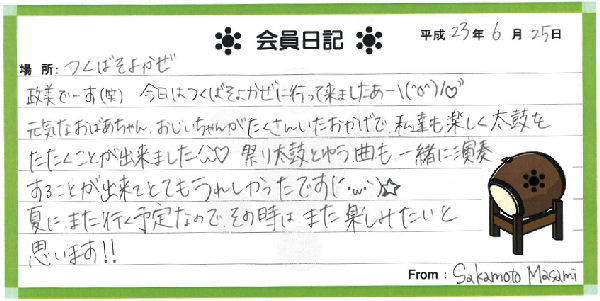 会員日記
平成23年6月25日
場所:つくばそよかぜ
政美でーす(笑) 今日はつくばそよかぜに行って来ましたあー\(^o^)/♡”
元気なおばあちゃん、おじいちゃんがたくさんいたおかげで、私達も楽しく太鼓を
たたくことが出来ました(^^)♡ 祭り太鼓とゆう曲も一緒に演奏
することが出来てとてもうれしかったです(´・ω・`)☆
夏に、また行く予定なので、その時は また楽しみたいと
思います!!
From : Sakamoto Masami